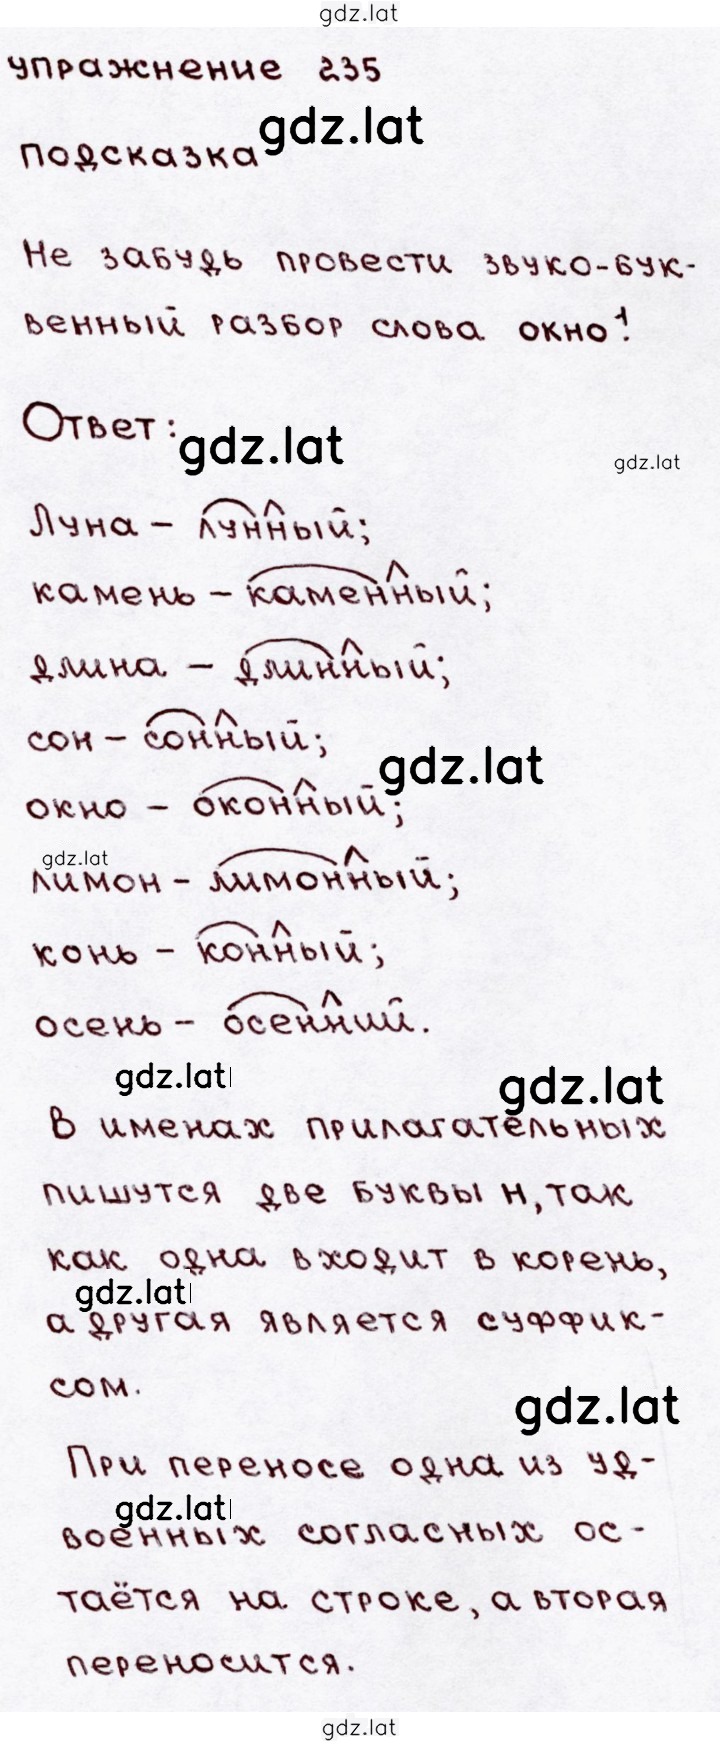 gdz.lat
упражнение 235
gdz.lat
подсказка
Не забудь провести звуко-бук-
венный разбор слова окно¹.
Ответ:
gdz.lat
gdz.lat
Луна - лунный;
камень - каменный;
длина - длинный;
сон - сонный;
gdz.lat
окно - оконный;
gdz.lat
лимон - лимонный;
конь - конный;
осень - осенний.
gdz.lat
gdz.lat
В именах прилагательных
пишутся две буквы н, так
как одна входит в корень,
gdz.lat
а другая является суффик-
сом.
gdz.lat
При переносе одна из уд-
gdz.lat
военных согласных ос-
таётся на строке, а вторая
переносится.
gdz.lat